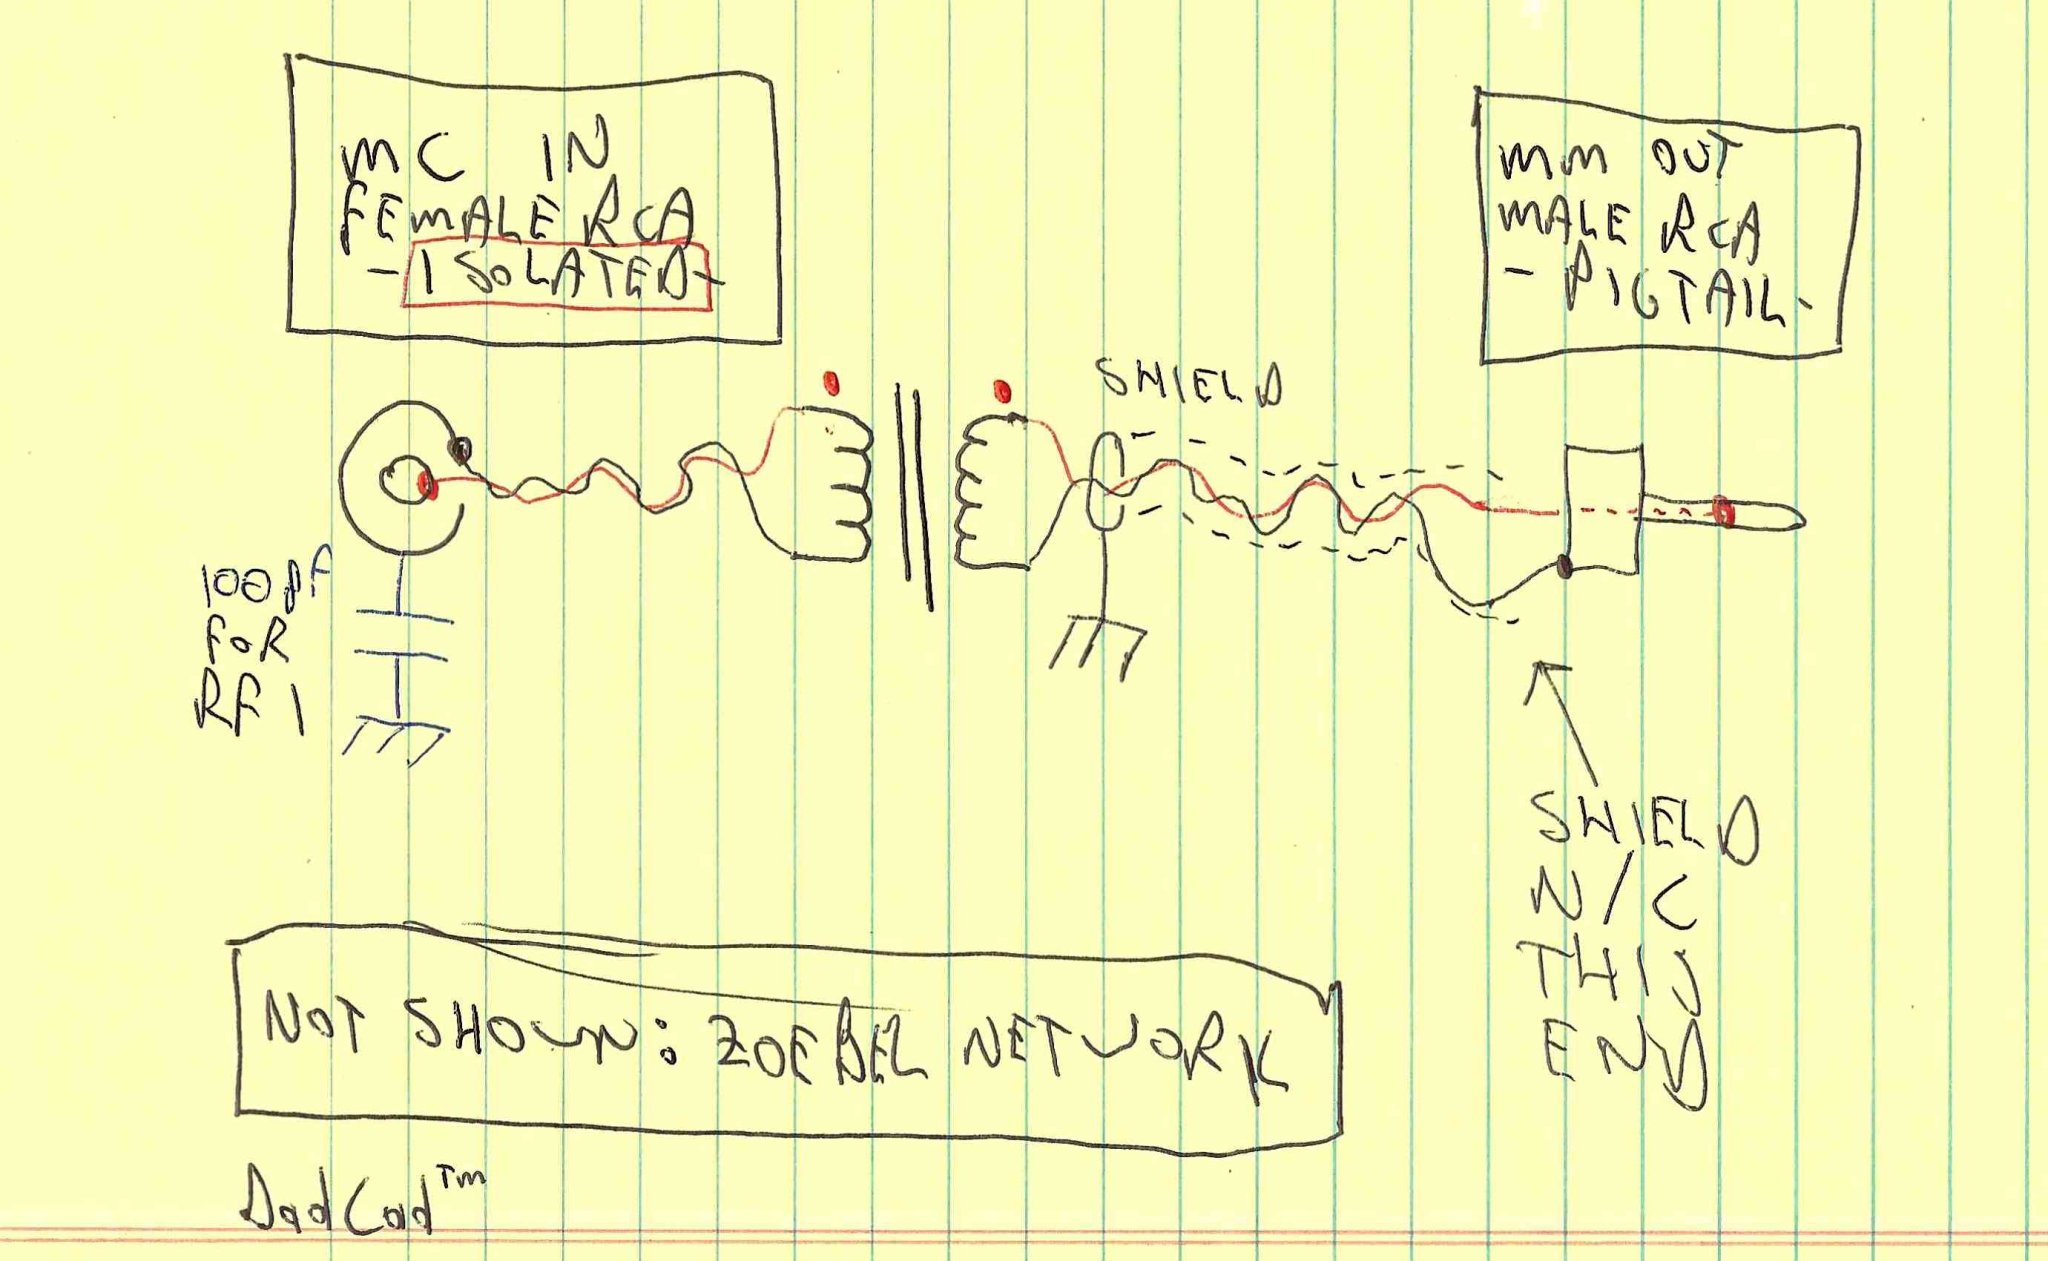 MC IN
FEMALE RCA
- ISOLATED -
MM OUT
MALE RCA
- PIGTAIL -
SHIELD
100 pF
FOR
RFI
SHIELD
N/C
THIS
END
NOT SHOWN: ZOEBEL NETWORK
DadCad™